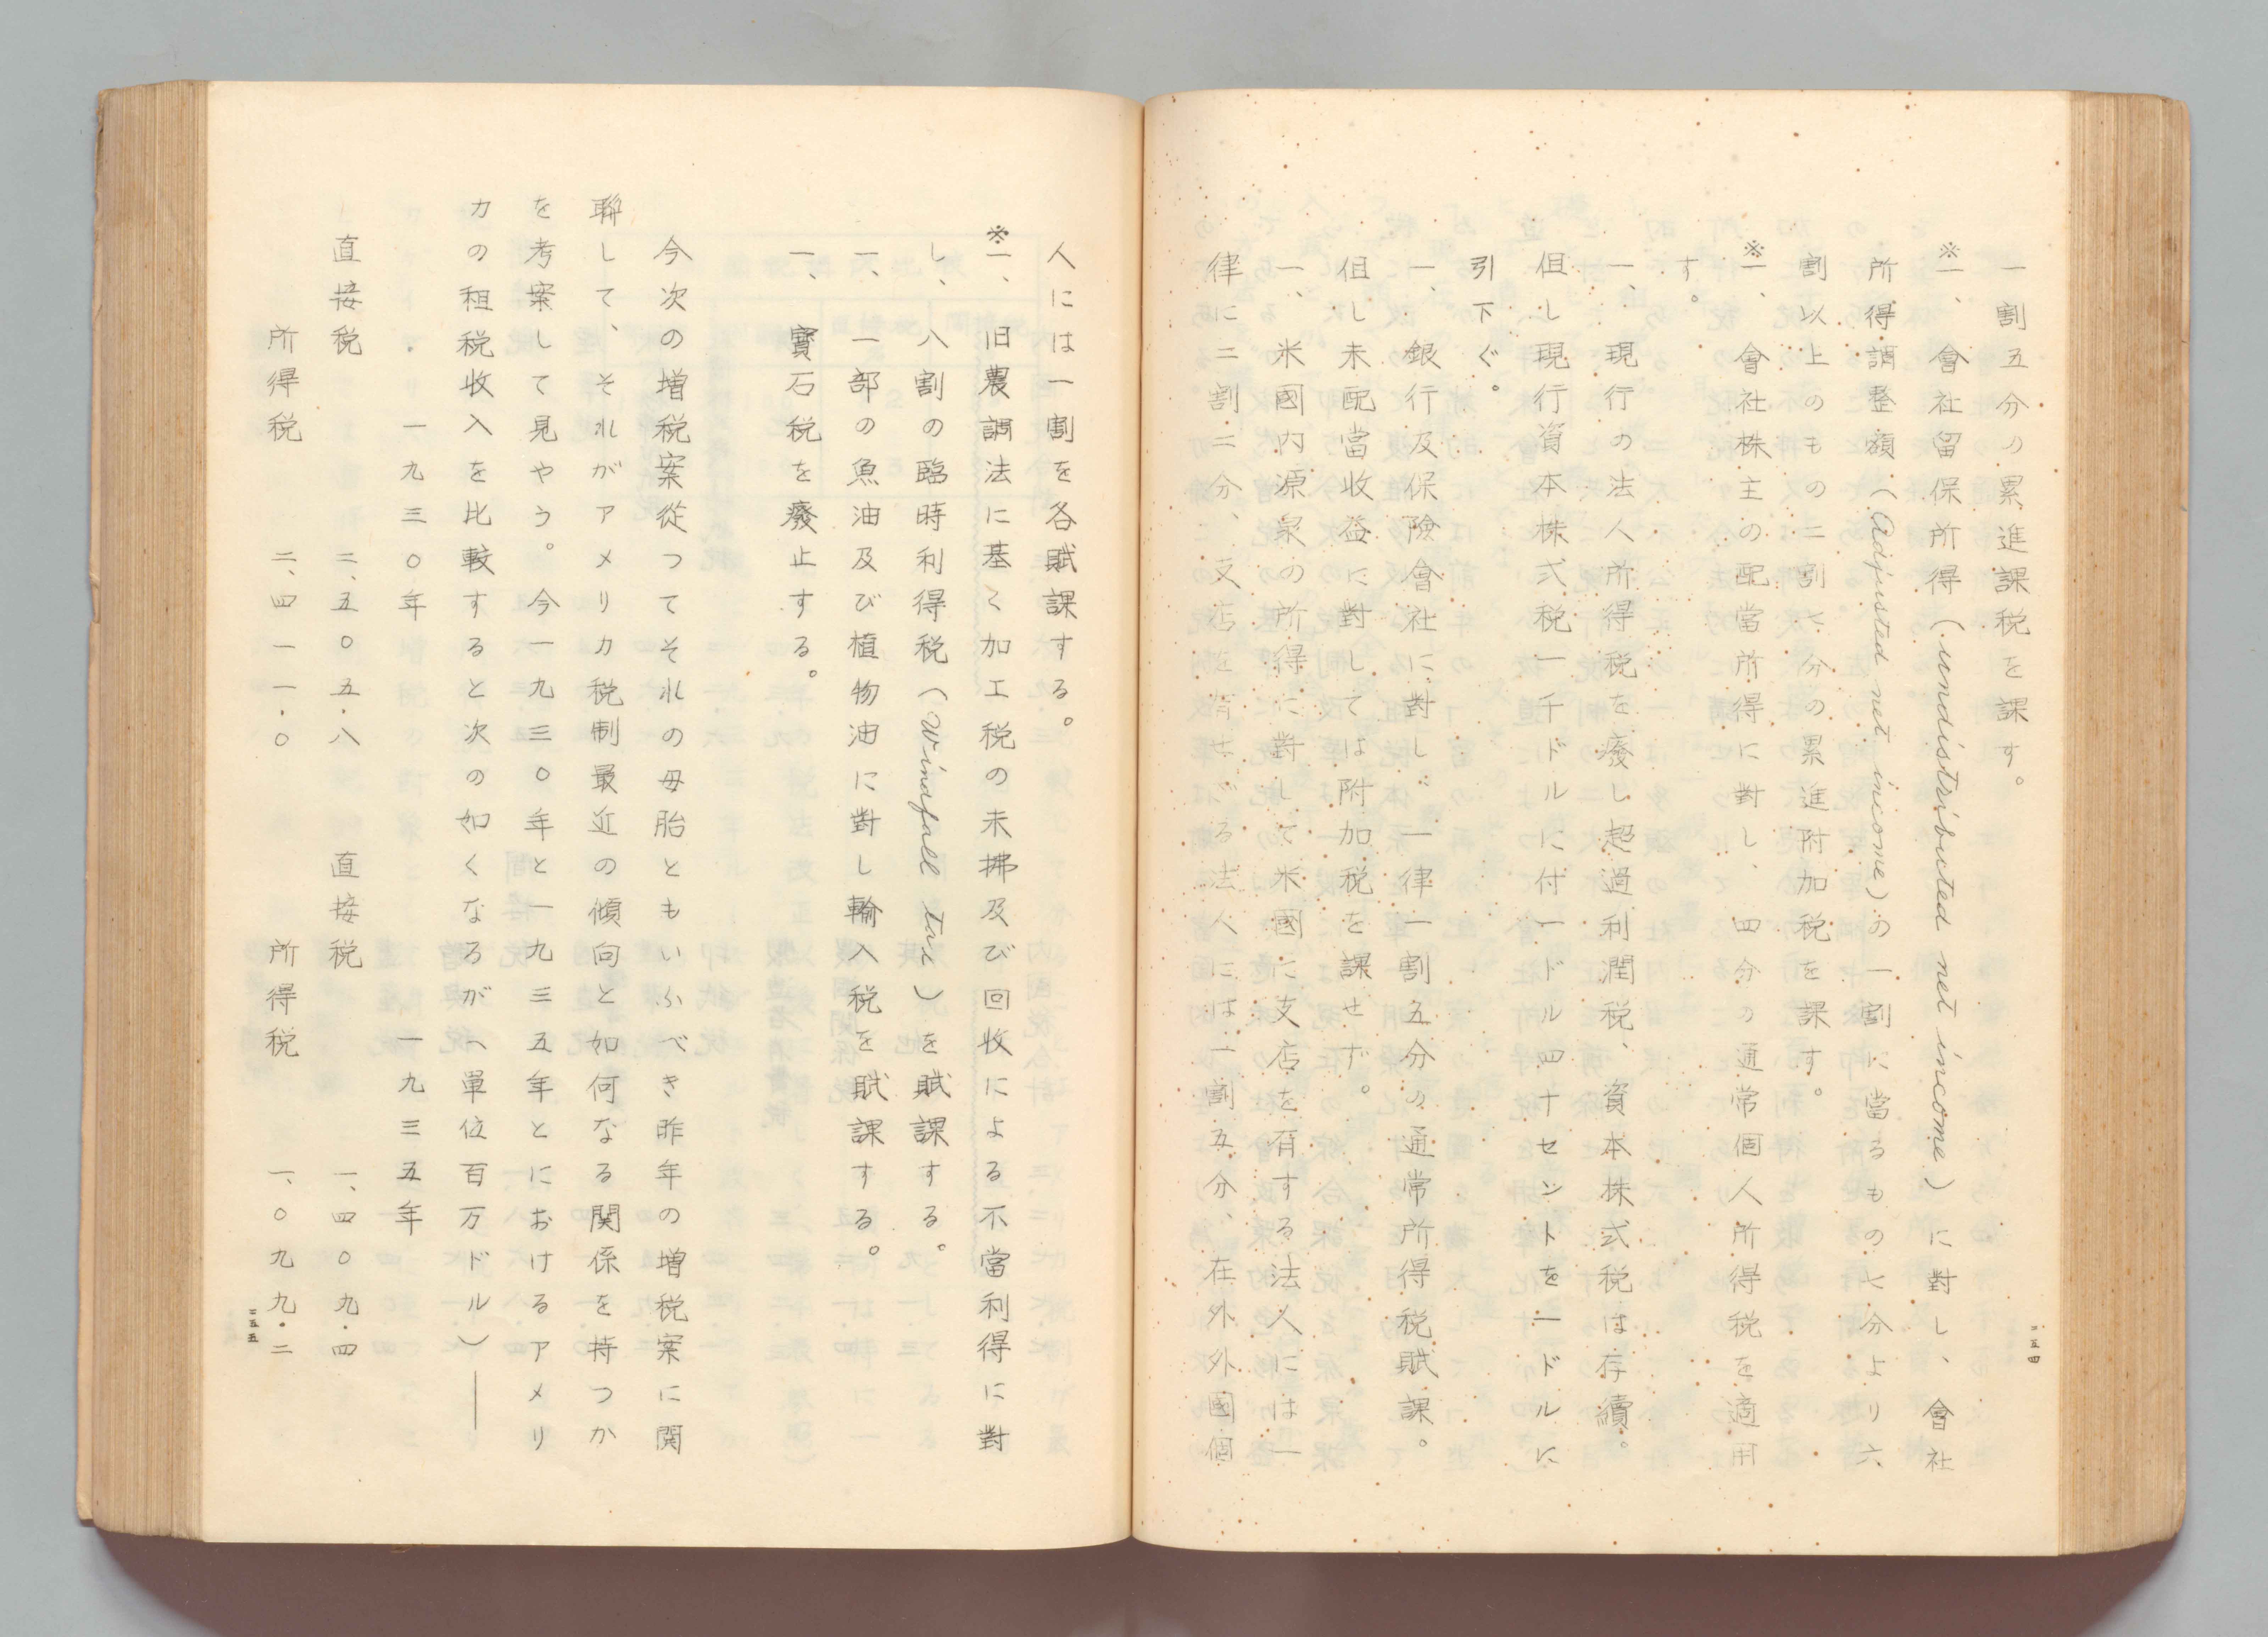 一割五分の累進課税を課す。
※一、會社留保所得(undistributed net income)に對し、會社
所得調整額(Adjusted net income)の一割に當るもの七分より六
割以上のもの二割七分の累進附加税を課す。
※一、會社株主の配當所得に對し、四分の通常個人所得税を適用
す。
一、現行の法人所得税を廢し超過利潤税、資本株式税は存續。
但し現行資本株式税一千ドルに付一ドル四十セントを一ドルに
引下ぐ。
一、銀行及保險會社に對し、一律一割五分の通常所得税賦課。
但し未配當收益に對しては附加税を課せず。
一、米國内源泉の所得に對して米國に支店を有する法人には一
律に二割二分、支店を有せざる法人には一割五分、在外外國個
二五四
人には一割を各賦課する。
※一、旧農調法に基く加工税の未拂及び回收による不當利得に對
し、八割の臨時利得税(Windfall tax)を賦課する。
一、一部の魚油及び植物油に對し輸入税を賦課する。
一、寶石税を廢止する。
今次の増税案從つてそれの母胎ともいふべき昨年の増税案に関
聯して、それがアメリカ税制最近の傾向と如何なる関係を持つか
を考案して見やう。今一九三〇年と一九三五年とにおけるアメリ
カの租税收入を比較すると次の如くなるが(單位百万ドル)——
・一九三〇年 一九三五年
直接税 二、五〇五・八 直接税 一、四〇九・四
所得税 二、四一一・〇 所得税 一、〇九九・二
二五五